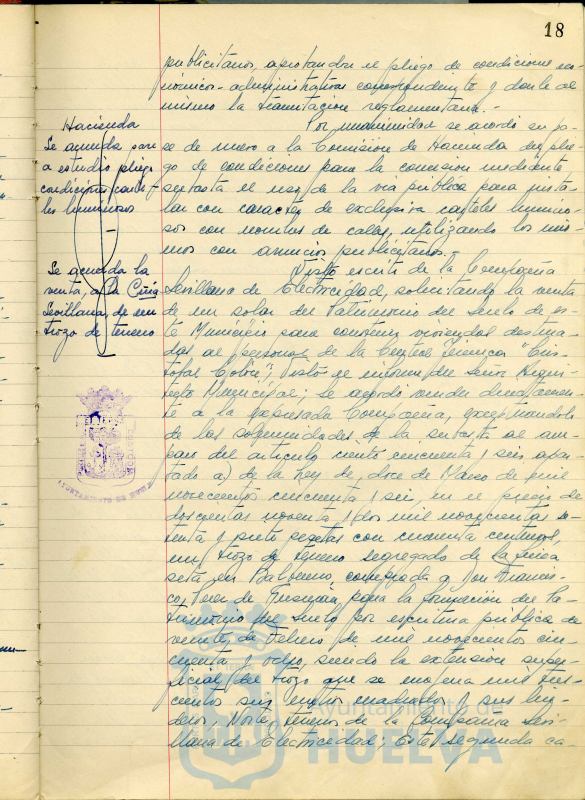 18
publicitarios, aprobandose el pliego de condiciones eco-
nómico-administrativas correspondiente y darle al
mismo la tramitación reglamentaria.-
Hacienda
Se acuerda pase
a estudio pliego
condiciones
luminosos
Por unanimidad se acordó su pa-
se de nuevo a la Comisión de Hacienda del plie-
go de condiciones para la concesión mediante
subasta el uso de la vía pública para insta-
lar con carácter de exclusiva carteles lumino-
sos con nombres de calles, utilizando los mis-
mos con anuncios publicitarios.
Se acuerda la
venta, a la Cñía
Sevillana, de un
trozo de terreno
Visto escrito de la Compañía
Sevillana de Electricidad, solicitando la venta
de un solar del Patrimonio del Suelo de es-
te Municipio para construir viviendas destina-
das al personal de la Central Térmica "Cris-
tobal Colón"; visto el informe del Señor Arqui-
tecto Municipal; se acordó vender directamen-
te a la expresada Compañía, exceptuándola
de las solemnidades de la subasta al am-
paro del artículo ciento cincuenta y seis apar-
tado a) de la Ley de doce de Mayo de mil
novecientos cincuenta y seis, en el precio de
doscientas noventa y dos mil novecientas se-
tenta y siete pesetas con cincuenta centimos,
un trozo de terreno segregado de la finca
comprada a Don Francis-
co Perez de Guzmán, para la formación del Pa-
trimonio del Suelo por escritura pública de
veinte de Febrero de mil novecientos cin-
cuenta y ocho, siendo la extensión super-
ficial del trozo que se enajena mil tres-
cientos seis metros cuadrados y sus lin-
deros; Norte, terrenos de la Compañía Sevi-
llana de Electricidad; Este, segunda ca-
AYUNTAMIENTO DE HUELVA
Ayuntamiento de
HUELVA